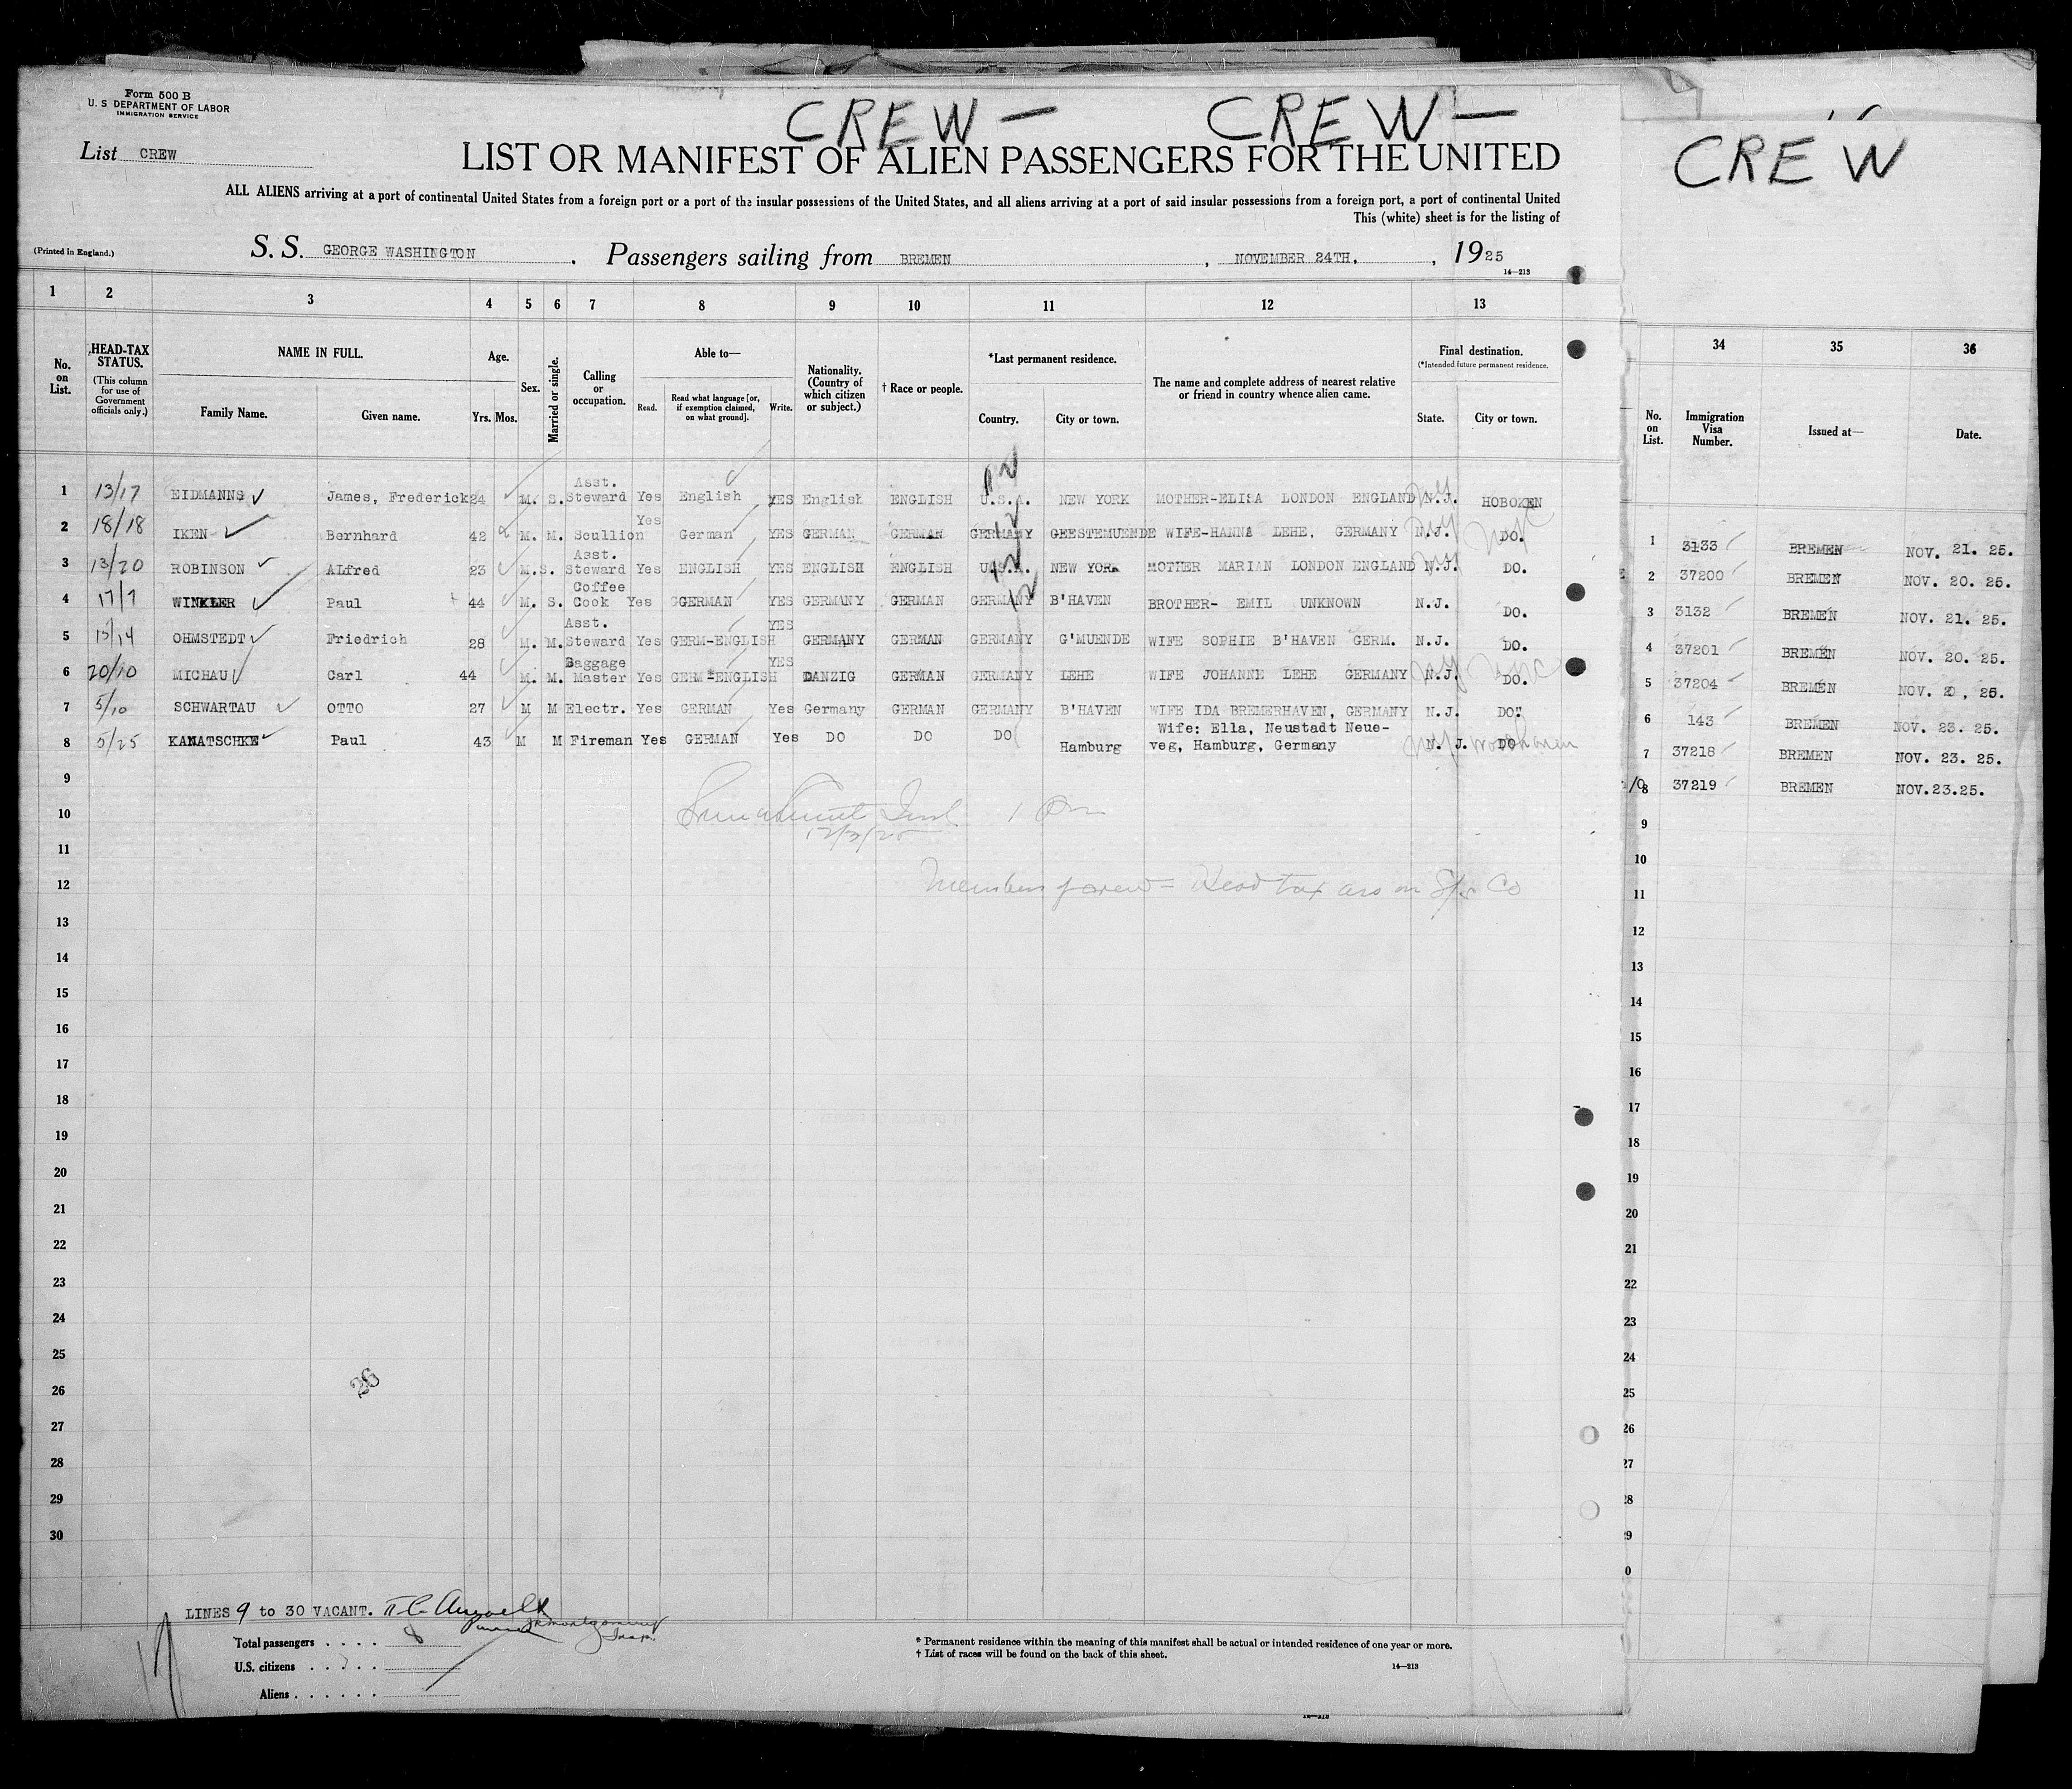 Form 500 B
U. S DEPARTMENT OF LABOR
IMMIGRATION SERVICE
CREW — CREW —
CREW
List CREW
LIST OR MANIFEST OF ALIEN PASSENGERS FOR THE UNITED
ALL ALIENS arriving at a port of continental United States from a foreign port or a port of the insular possessions of the United States, and all aliens arriving at a port of said insular possessions from a foreign port, a port of continental United
This (white) sheet is for the listing of
(Printed in England.)
S. S. GEORGE WASHINGTON . Passengers sailing from BREMEN , NOVEMBER 24TH. , 1925
14—213
1 2 3 4 5 6 7 8 9 10 11 12 13
No. on List.
HEAD-TAX STATUS.
(This column for use of Government officials only.)
NAME IN FULL.
Family Name. Given name.
Age.
Yrs. Mos.
Sex.
Married or single.
Calling or occupation.
Able to—
Read. Read what language [or, if exemption claimed, on what ground]. Write.
Nationality. (Country of which citizen or subject.)
† Race or people.
*Last permanent residence.
Country. City or town.
The name and complete address of nearest relative or friend in country whence alien came.
Final destination.
(*Intended future permanent residence.
State. City or town.
1 13/17 EIDMANNS James, Frederick 24 M. S. Asst. Steward Yes English YES English ENGLISH U.S.A. NEW YORK MOTHER-ELISA LONDON ENGLAND N.J. HOBOKEN
2 18/18 IKEN Bernhard 42 M. M. Scullion Yes German YES GERMAN GERMAN GERMANY GEESTEMUENDE WIFE-HANNA LEHE, GERMANY N.J. DO.
3 13/20 ROBINSON ALfred 23 M. S. Asst. Steward Yes ENGLISH YES ENGLISH ENGLISH U.S.A. NEW YORK MOTHER MARIAN LONDON ENGLAND N.J. DO.
4 17/7 WINKLER Paul 44 M. S. Coffee Cook Yes GGERMAN YES GERMANY GERMAN GERMANY B'HAVEN BROTHER- EMIL UNKNOWN N.J. DO.
5 15/14 OHMSTEDT Friedrich 28 M. M. Asst. Steward Yes GERM-ENGLISH YES GERMANY GERMAN GERMANY G'MUENDE WIFE SOPHIE B'HAVEN GERM. N.J. DO.
6 20/10 MICHAU Carl 44 M. M. Baggage Master Yes GERM-ENGLISH YES DANZIG GERMAN GERMANY LEHE WIFE JOHANNE LEHE GERMANY N.J. DO.
7 5/10 SCHWARTAU OTTO 27 M M Electr. Yes GERMAN Yes Germany GERMAN GERMANY B'HAVEN WIFE IDA BREMERHAVEN, GERMANY N.J. DO"
8 5/25 KANATSCHKE Paul 43 M M Fireman Yes GERMAN Yes DO DO DO Hamburg Wife: Ella, Neustadt Neue-
veg, Hamburg, Germany N. J. DO Woodhaven
9
10
12/3/25
11
12 Members of crew = Head tax ass on S/S Co
13
14
15
16
17
18
19
20
21
22
23
24
25
26
26
27
28
29
30
LINES 9 to 30 VACANT.
Total passengers . . . . 8
U.S. citizens . . . . .
Aliens . . . . . .
* Permanent residence within the meaning of this manifest shall be actual or intended residence of one year or more.
† List of races will be found on the back of this sheet.
14—213
34 35 36
No. on List. Immigration Visa Number. Issued at— Date.
1 3133 BREMEN NOV. 21. 25.
2 37200 BREMEN NOV. 20. 25.
3 3132 BREMEN NOV. 21. 25.
4 37201 BREMEN NOV. 20. 25.
5 37204 BREMEN NOV. 20, 25.
6 143 BREMEN NOV. 23. 25.
7 37218 BREMEN NOV. 23. 25.
8 37219 BREMEN NOV.23.25.
9
10
11
12
13
14
15
16
17
18
19
20
21
22
23
24
25
26
27
28
29
0
14—213